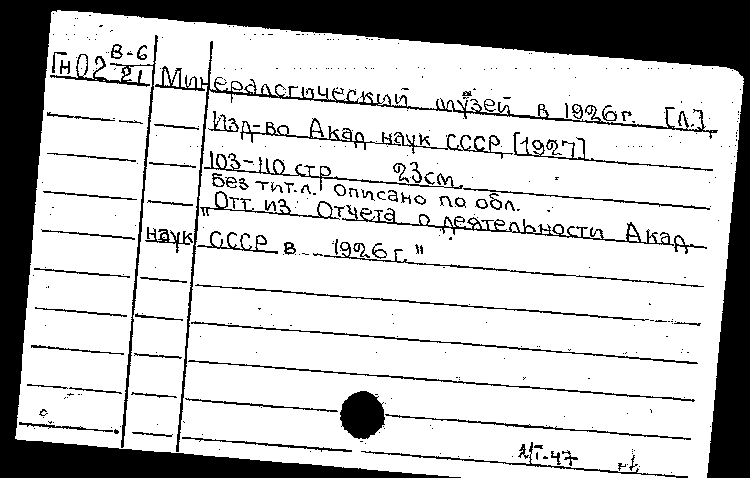 Гн02 В-6/21
Минералогический музей в 1926 г. [Л.],
Изд-во Акад наук СССР, [1927].
103-110 стр. 23 см.
Без тит. л. Описано по обл.
"Отт. из: Отчета о деятельности Акад.
наук СССР в 1926 г."
-47